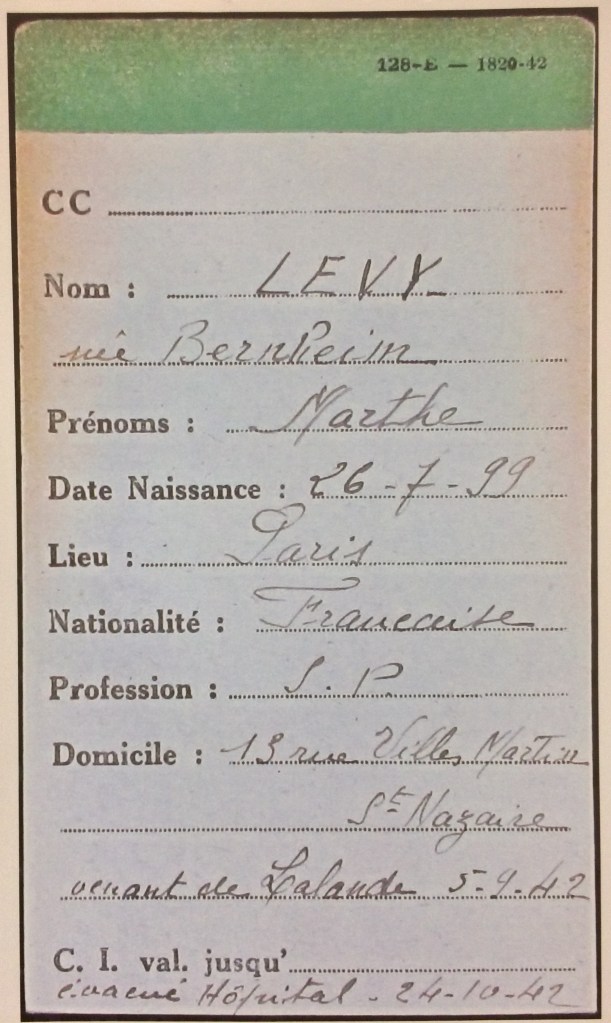 128-E — 1820-42
CC
Nom : LEVY
née Bernheim
Prénoms : Marthe
Date Naissance : 26-7-99
Lieu : Paris
Nationalité : Francaise
Profession : S. P
Domicile : 13 rue Villes Martin
St Nazaire
venant de Lalande 5-9-42
C. I. val. jusqu'
évacué Hôpital - 24-10-42